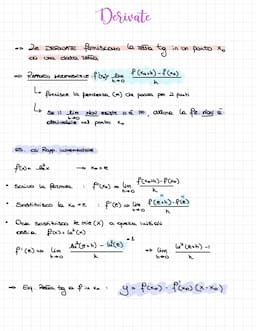 Derivate
⇒ Le DERIVATE forniscono la retta tg in un punto x₀
di una data retta
⇒ RAPPORTO INCREMENTALE f'(x₀) = lim h→0 f(x₀+h) - f(x₀) / h
↳ fornisce la pendenza (m) che passa per 2 punti
↳ Se il lim h→0 NON esiste o è ∞, allora la fz. NON è
derivabile nel punto x₀
ES. di Rapp. incrementale
f(x) = ln²x → x₀ = e
• Scrivo la formula : f'(x₀) = lim h→0 f(x₀+h) - f(x₀) / h
• Sostituisco la x₀ = e : f'(e) = lim h→0 f(e+h) - f(e) / h
• Ora sostituisco le mie (x) a quella iniziali
ossia f(x) = ln²(x)
f'(e) = lim h→0 ln²(e+h) - ln²(e) / h = 1 ⇒ lim h→0 ln²(e+h) - 1 / h
→ Eq. Retta tg a f in x₀ : y = f(x₀) - f'(x₀)(x-x₀)